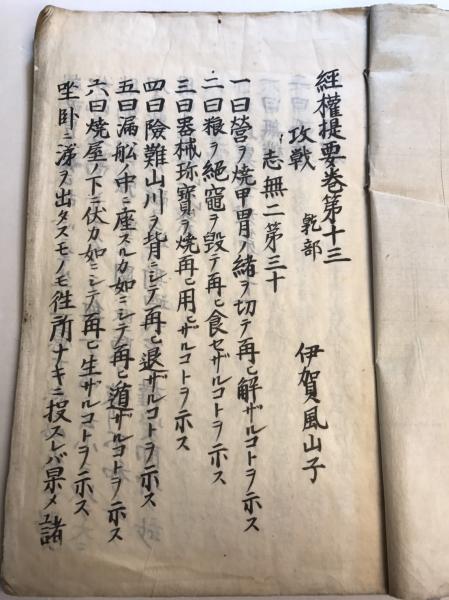 經權提要巻第十三
攻戦 乾部 伊賀風山子
志無二第三十
一曰營ヲ焼甲冑ノ緒ヲ切テ再ヒ解ザルコトヲ示ス
二曰粮ヲ絶竈ヲ毀テ再ヒ食セザルコトヲ示ス
三曰器械珎寳ヲ焼再ヒ用ヒザルコトヲ示ス
四曰險難山川ヲ背ニシテ再ヒ退ザルコトヲ示ス
五曰漏舩ノ中ニ座スルカ如ニシテ再ヒ遁ザルコトヲ示ス
六曰焼屋ノ下ニ伏カ如ニシテ再ヒ生ザルコトヲ示ス
坐卧ニ涕ヲ出タスモノモ徃所ナキニ投スレバ果メ諸